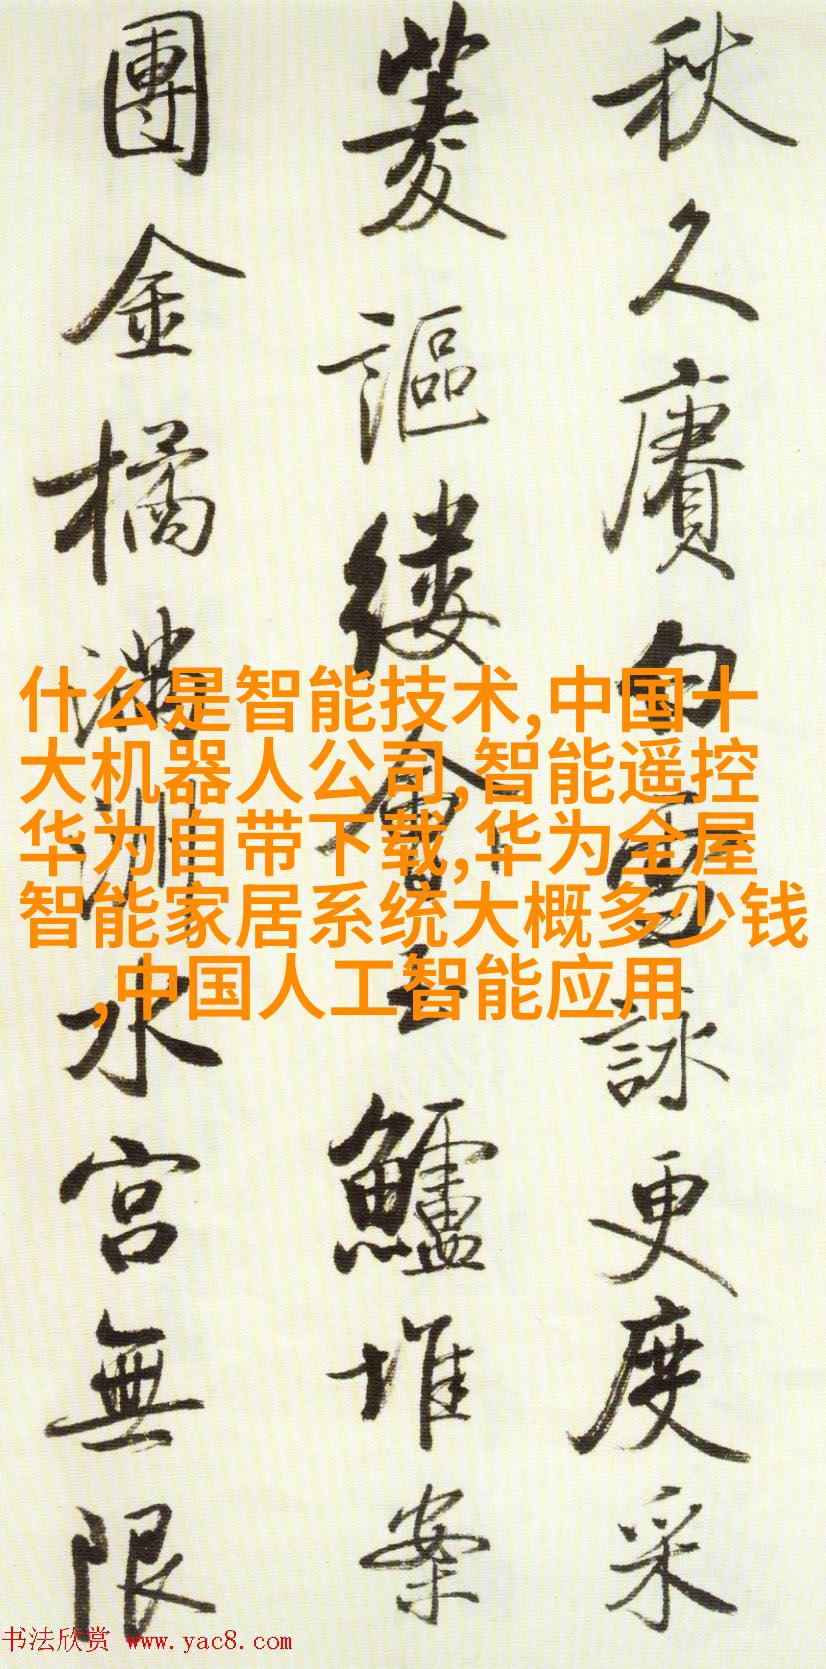 秋久賡白雪詠更度采
菱謳縷會玉鱸堆案
團金橘滿洲水宮無限
什么是智能技术,中国十
大机器人公司,智能遥控
华为自带下载,华为全屋
智能家居系统大概多少钱
,中国人工智能应用
书法欣赏 www.yac8.com